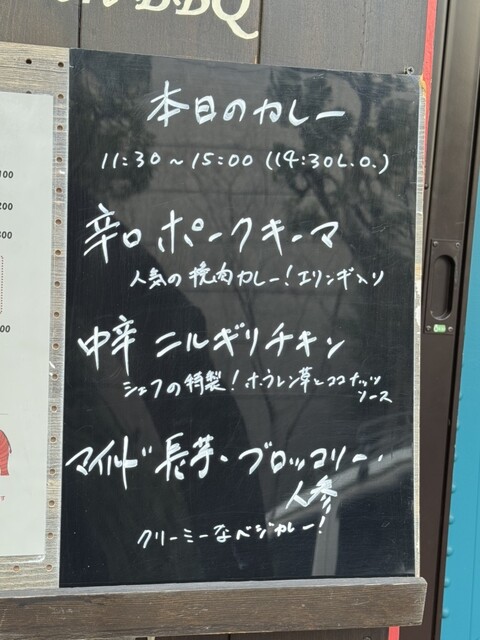 BBQ
本日のカレー
11:30～15:00 (14:30L.O.)
辛口 ポークキーマ
人気の挽肉カレー！エリンギ入り
中辛 ニルギリチキン
シェフの特製！ホウレン草とココナッツ
ソース
マイルド 長芋・ブロッコリー・
人参
クリーミーなベジカレー！